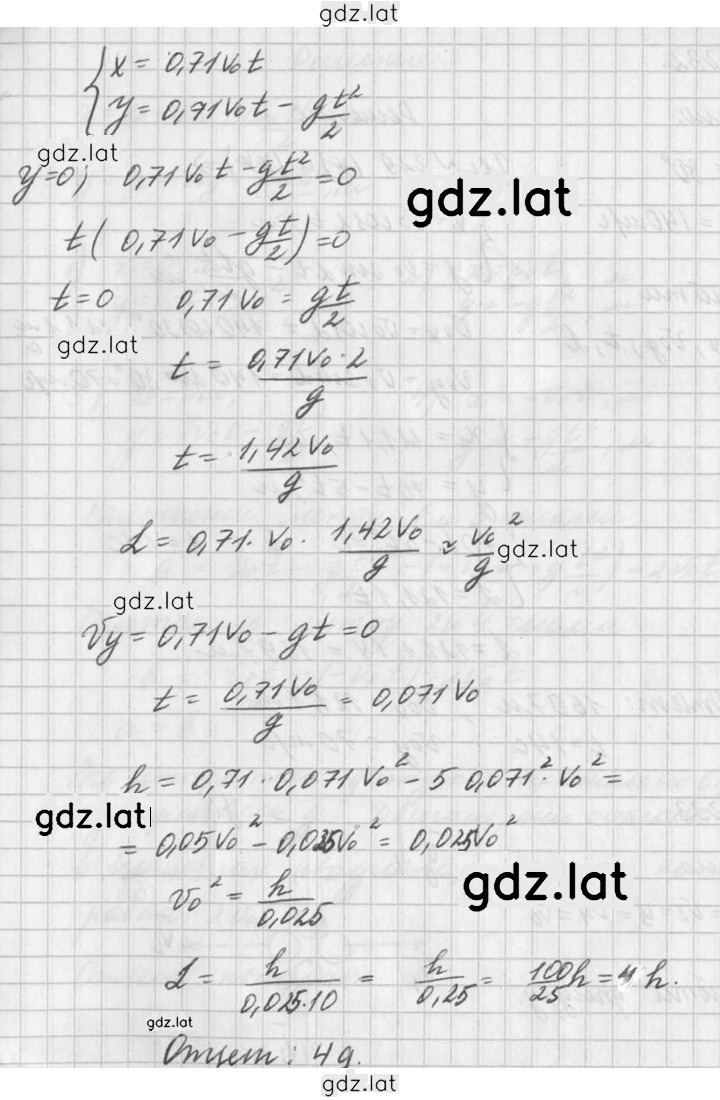 gdz.lat
x = 0,71v₀t
y = 0,71v₀t - gt²/2
gdz.lat
y=0; 0,71v₀t - gt²/2 = 0
gdz.lat
t(0,71v₀ - gt/2) = 0
t=0 0,71v₀ = gt/2
gdz.lat
t = 0,71v₀·2/g
t = 1,42v₀/g
L = 0,71·v₀· 1,42v₀/g ≈ v₀²/g
gdz.lat
gdz.lat
Vy = 0,71v₀ - gt = 0
t = 0,71v₀/g = 0,071v₀
h = 0,71·0,071v₀² - 5 0,071²·v₀² =
gdz.lat
= 0,05v₀² - 0,025v₀² = 0,025v₀²
v₀² = h/0,025
gdz.lat
L = h/0,025·10 = h/0,25 = 100h/25 = 4h.
gdz.lat
Ответ: 4g.
gdz.lat